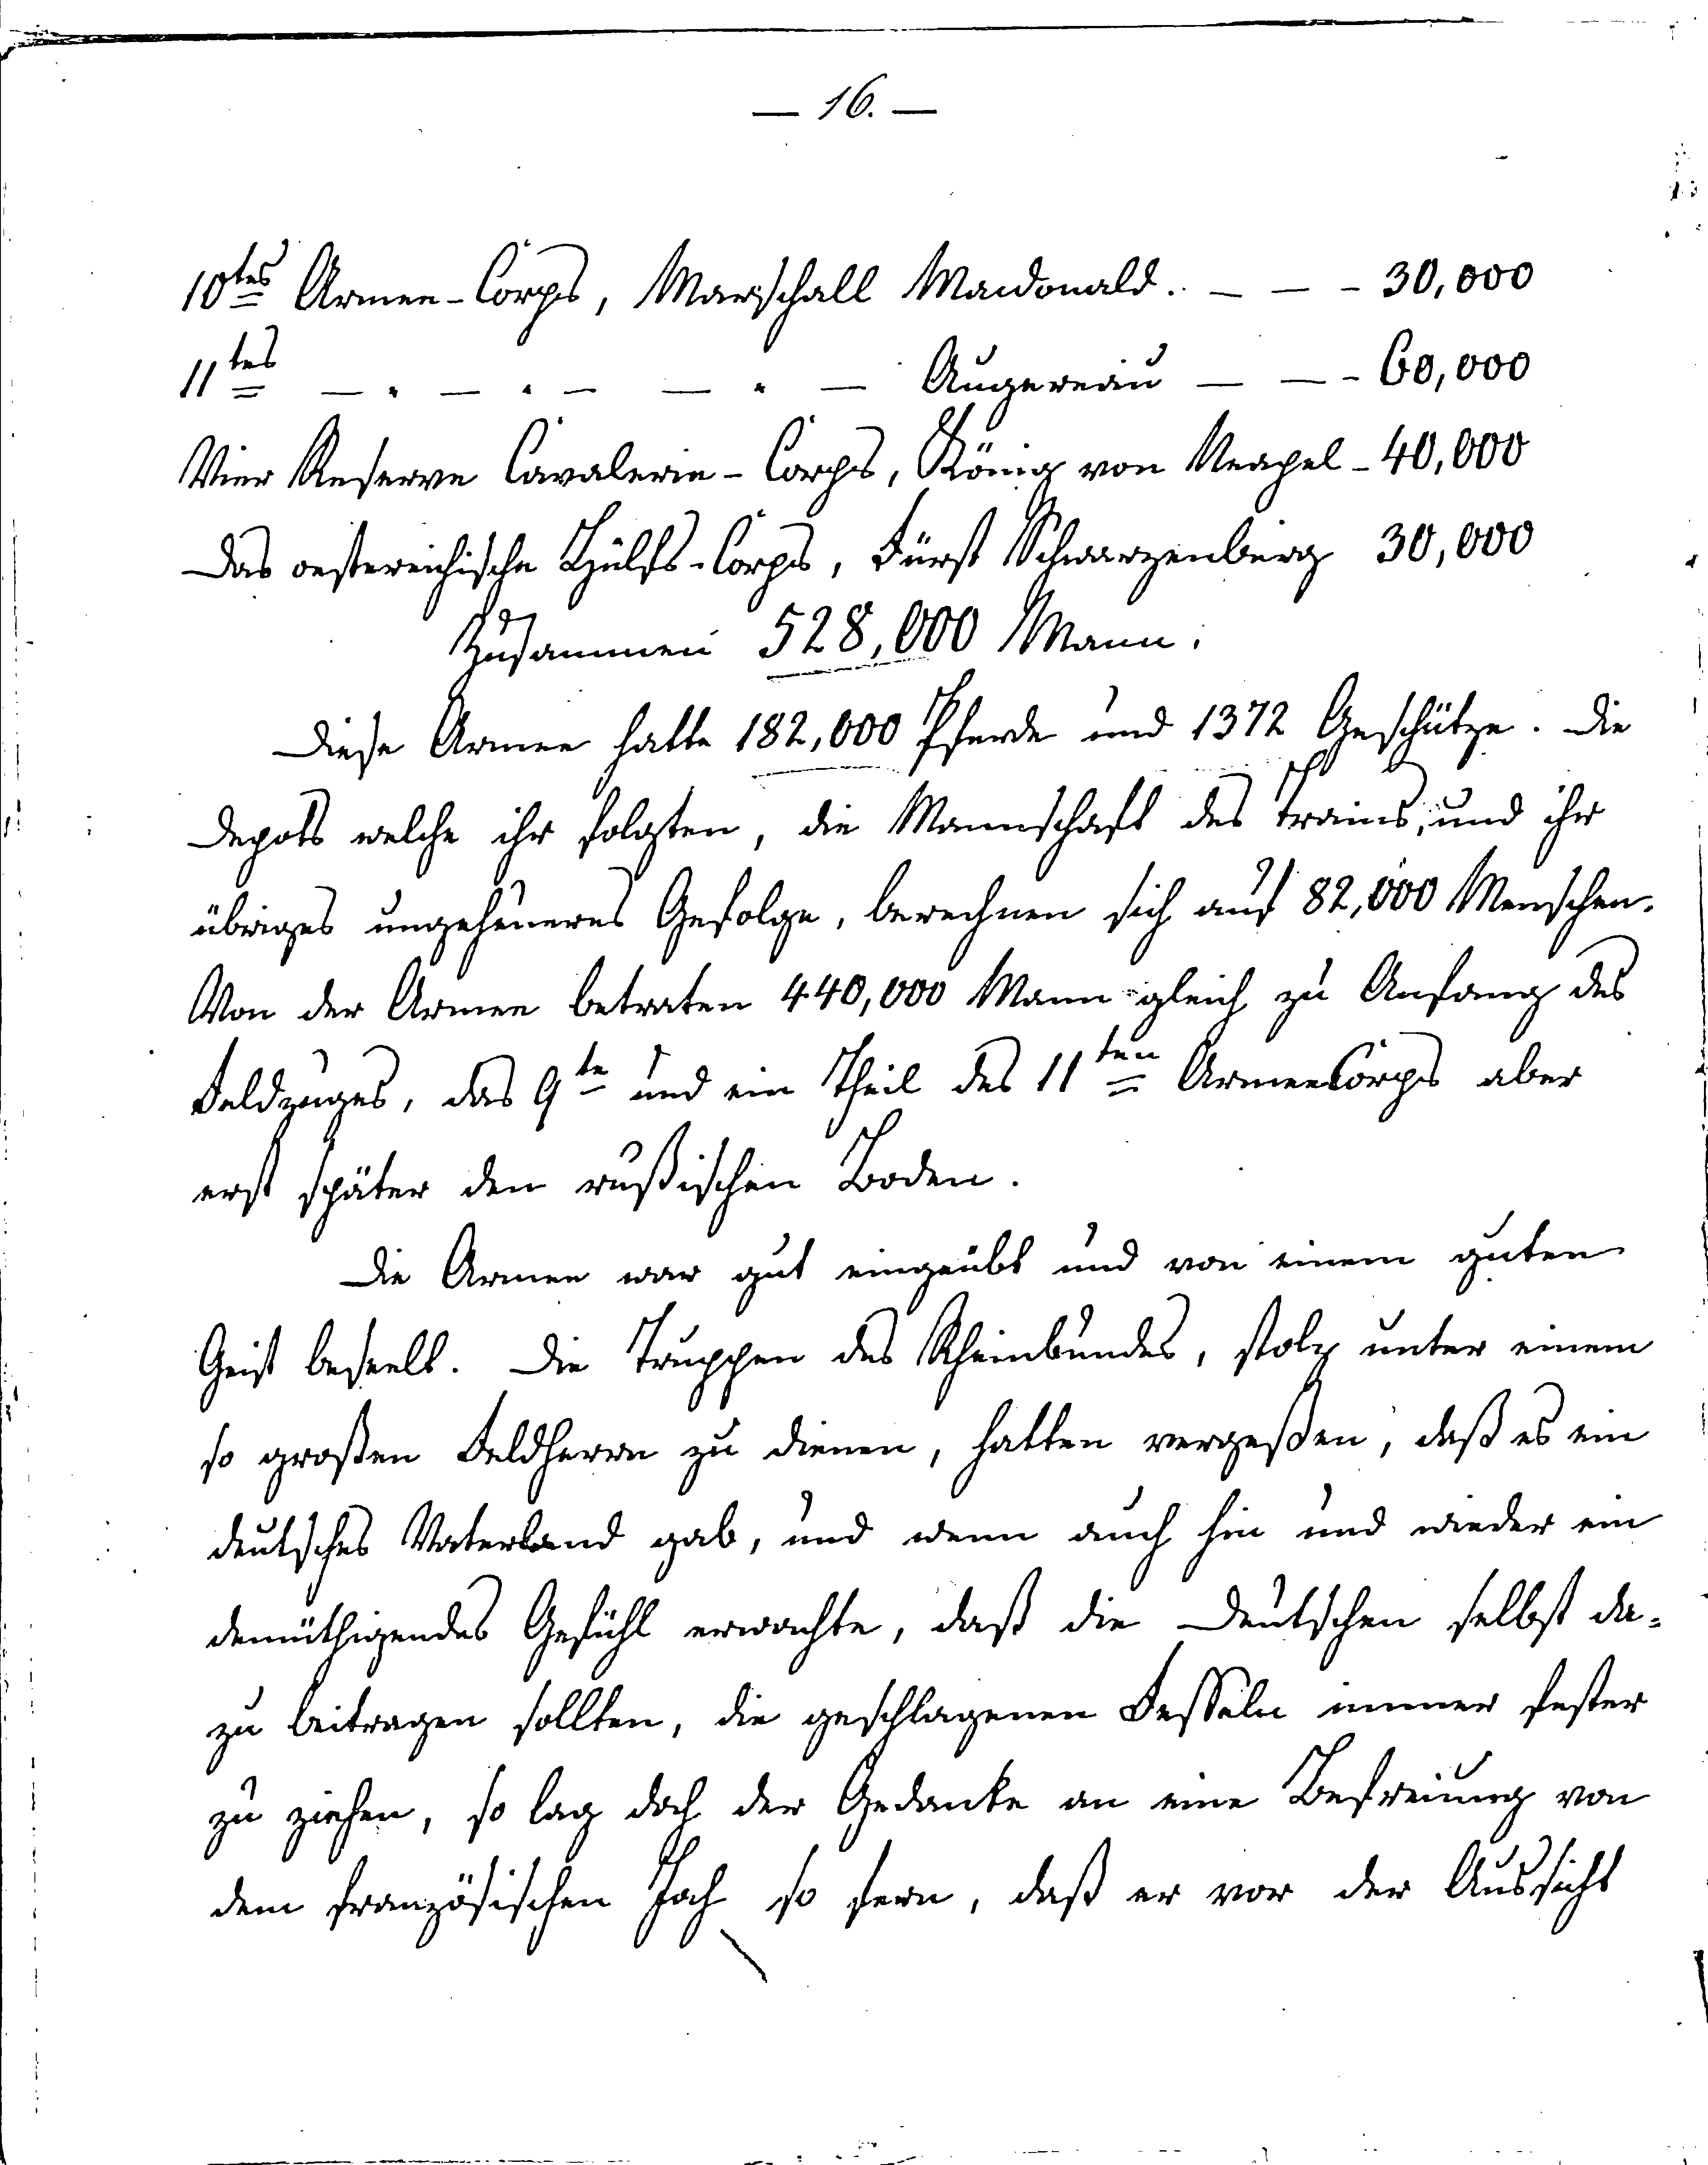 — 16. —
10tes Armee-Corps, Marschall Macdonald. — — - 30,000
11tes — . — . — — . — Augereau — — - 60,000
Vier Reserve Cavalerie - Corps, König von Neapel - 40,000
Das oestereichische Hülfs-Corps, Fürst Schwarzenberg 30,000
Zusammen 528,000 Mann.
Diese Armee hatte 182,000 Pferde und 1372 Geschütze. Die
Depots welche ihr folgten, die Mannschaft des Trains, und ihr
übriges ungeheueres Gefolge, berechnen sich auf 82,000 Menschen.
Von der Armee betraten 440,000 Mann gleich zu Anfang des
Feldzuges, das 9te und ein Theil des 11ten ArmeeCorps aber
erst später den rußischen Boden.
Die Armee war gut eingeübt und von einem guten
Geist beseelt. Die Truppen des Rheinbundes, stolz unter einem
so großen Feldherrn zu dienen, hatten vergeßen, daß es ein
deutsches Vaterland gab, und wenn auch hin und wieder ein
demüthigendes Gefühl erwachte, daß die Deutschen selbst da-
zu beitragen sollten, die geschlagenen Fesseln immer fester
zu ziehen, so lag doch der Gedanke an eine Befreiung von
dem französischen Joch so fern, daß er vor der Aussicht